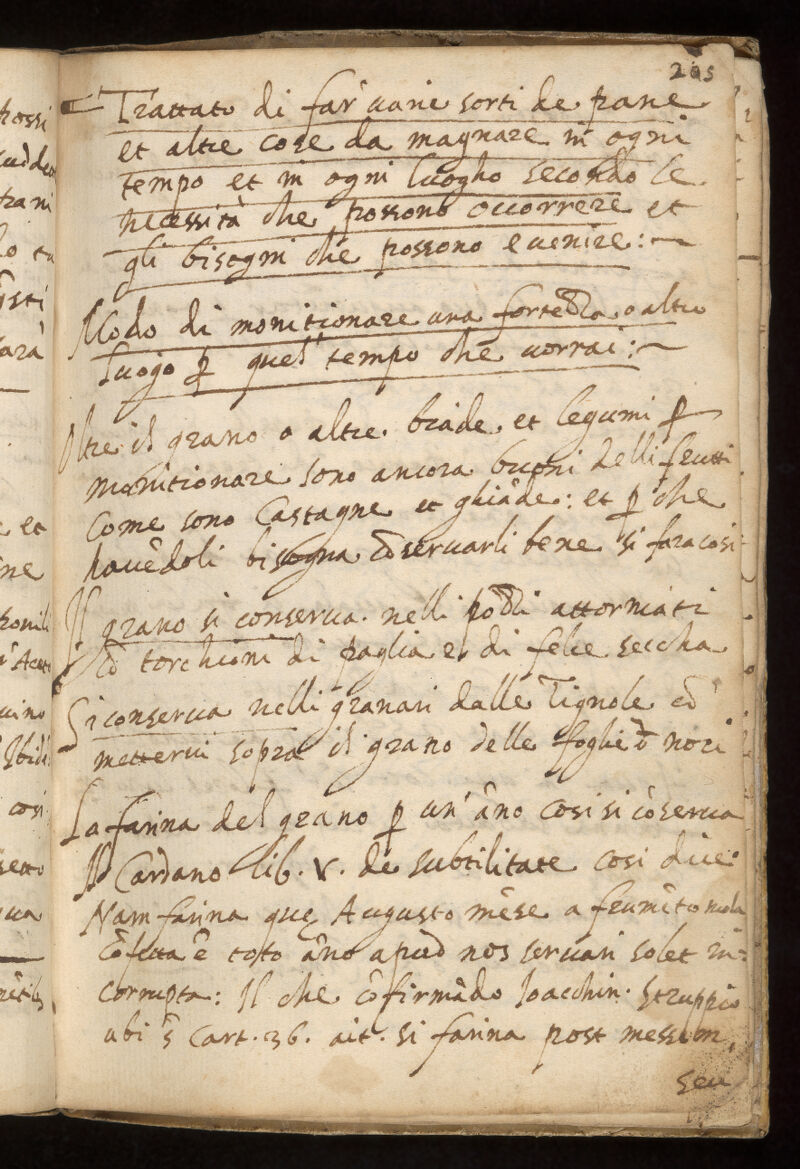 205
Trattato di far' varie sorti de pane
et altre cose da magnare in ogni
tempo et in ogni luogho secondo le
necessità che possono occorrere et
gli bisogni che possono evenire:~
Modo di monitionare una fortezza o altro
luogo ꝑ quel tempo che vorrai:~
Oltre il grano o altre biade et legumi ꝑ
monitionare sono ancora buoni delli frutti
come sono Castagne et ghiãde: et ꝑ che
havẽdoli bisogna cõservarli bene si fara cosi
Il grano si conserva nelli pozzi attorniati
cõ torchioni di paglia e di felce seccha
Si conserva nelli granari dalle Tignole cõ
mettervi sopra il grano delle foglie d noci
La farina del grano ꝑ un' ãno cosi si cõserva
Il Cardano lib. V. de subtilitate cosi dice
Nam farina quę Augusto mẽse a frumẽto mola
cõfecta ẽ toto ãno apud nos servari solet in=
corrupta: Il che cõfirmãdo Ioacchin. Struppio
ubi s̃ Cart. 36. ait. si farina post messem,
seu
hossi
trani
lo
sti
sarà
et
ne
vino
cosi